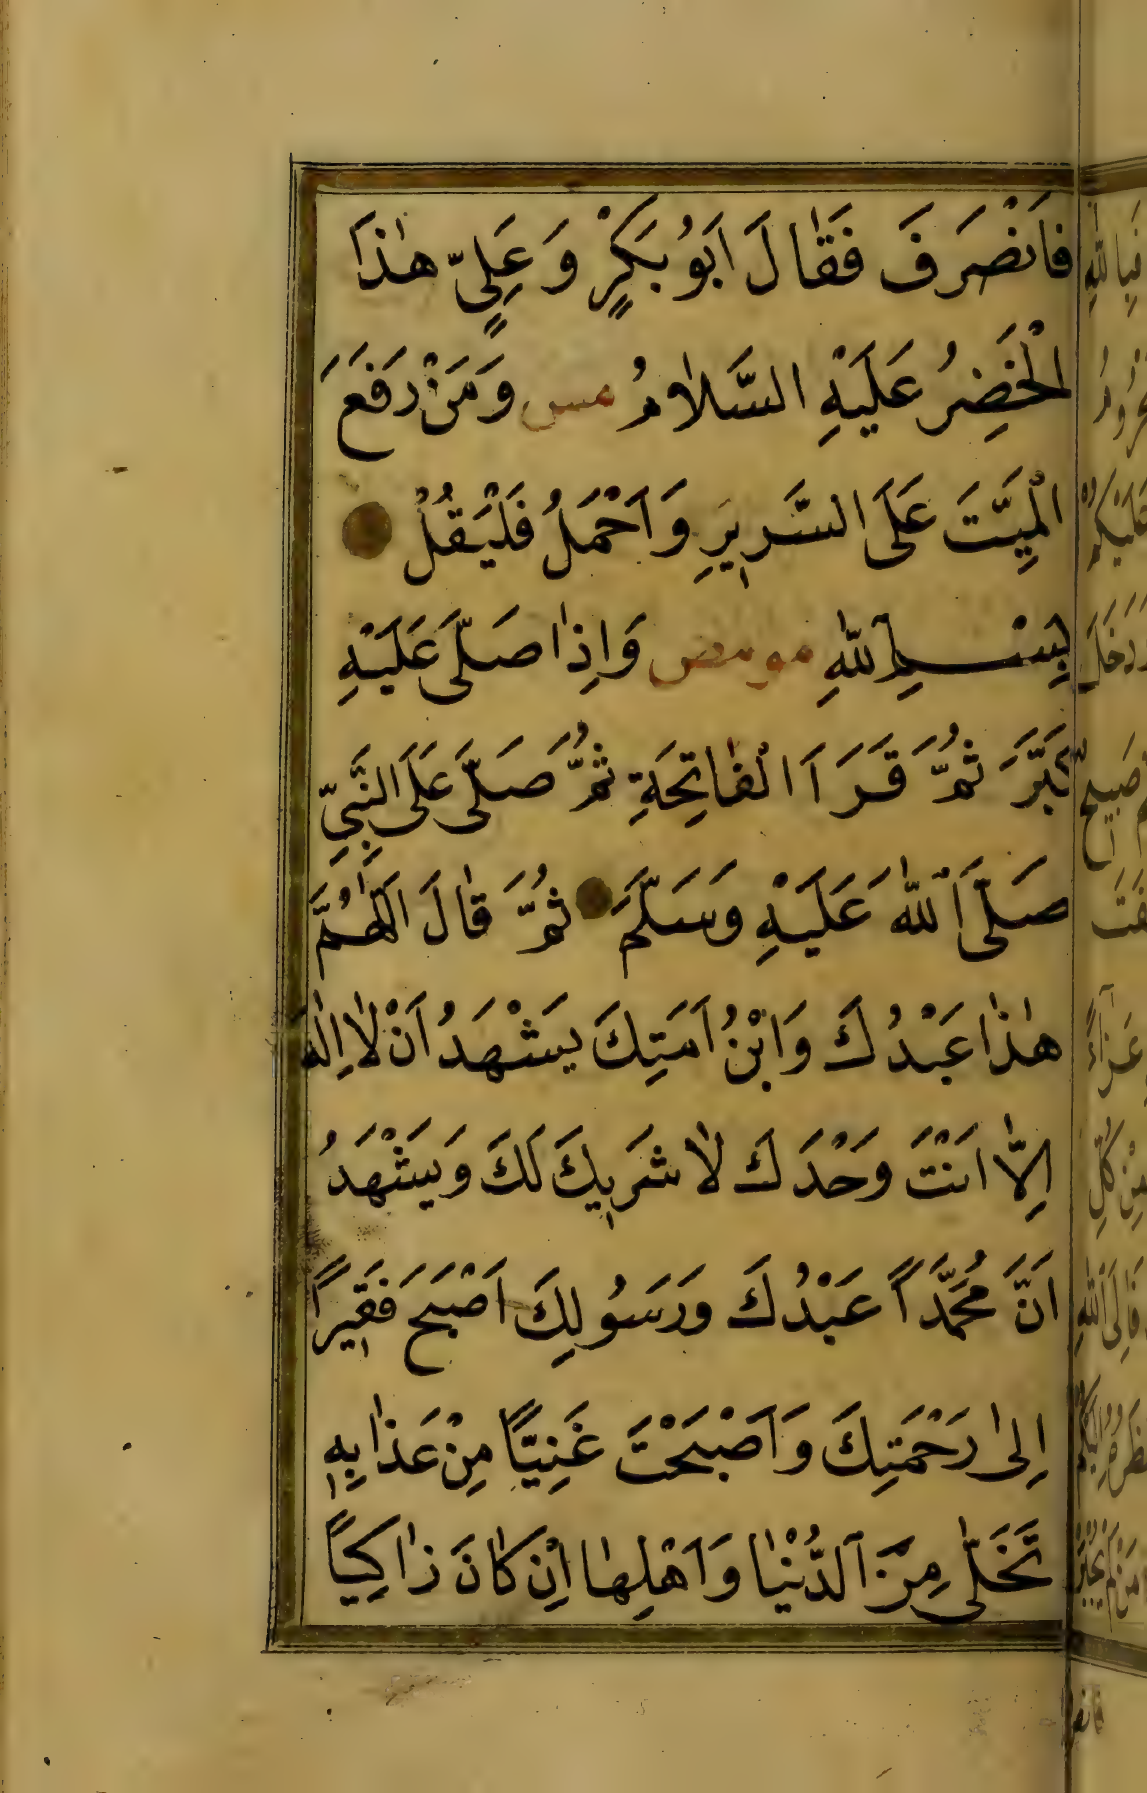 فَانْصَرَفَ فَقَالَ اَبُو بَكْرٍ وَعَلِىٍّ هٰذَا
الْخَضِرُ عَلَيْهِ السَّلَامُ مس وَمَنْ رَفَعَ
الْمَيِّتَ عَلَى السَّرِيرِ وَاَحْمَلُ فَلْيَقُلْ
بِسْمِ اللّٰهِ مو مص وَاِذَا صَلّٰى عَلَيْهِ
كَبَّرَ ثُمَّ قَرَاَ الْفَاتِحَةِ ثُمَّ صَلَّى عَلَى النَّبِيِّ
صَلَّى اَللّٰهُ عَلَيْهِ وَسَلَّمَ ثُمَّ قَالَ اَللّٰهُمَّ
هٰذَا عَبْدُكَ وَابْنُ اَمَتِكَ يَشْهَدُ اَنْ لَا اِلٰهَ
اِلَّا اَنْتَ وَحْدَكَ لَا شَرِيكَ لَكَ وَيَشْهَدُ
اَنَّ مُحَمَّداً عَبْدُكَ وَرَسُولِكَ اَصْبَحَ فَقِيراً
اِلٰى رَحْمَتِكَ وَاَصْبَحْتَ غَنِيًّا مِنْ عَذَابِهِ
تَخَلّٰى مِنَ الدُّنْيَا وَاَهْلِهَا اِنْ كَانَ زَاكِيًا